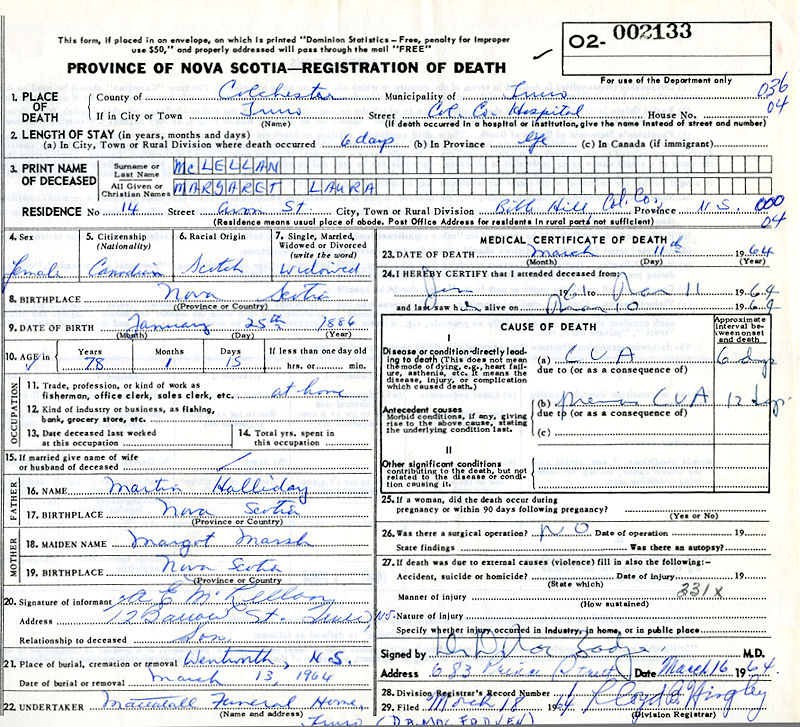 This form, if placed in an envelope, on which is printed "Dominion Statistics - Free, penalty for improper
use $50," and properly addressed will pass through the mail "FREE"
02- 002133
PROVINCE OF NOVA SCOTIA—REGISTRATION OF DEATH
For use of the Department only
1. PLACE OF DEATH County of Colchester Municipality of Truro 036
If in City or Town Truro Street Col. Co. Hospital House No. 04
(Name) (If death occurred in a hospital or institution, give the name instead of street and number)
2. LENGTH OF STAY (in years, months and days)
(a) In City, Town or Rural Division where death occurred 6 days (b) In Province life (c) In Canada (if immigrant)
3. PRINT NAME OF DECEASED Surname or Last Name McLELLAN
All Given or Christian Names MARGARET LAURA
RESIDENCE No 14 Street St. City, Town or Rural Division Bible Hill Col. Co. Province N.S. 000
(Residence means usual place of abode. Post Office Address for residents in rural parts not sufficient) 04
4. Sex Female
5. Citizenship (Nationality) Canadian
6. Racial Origin Scotch
7. Single, Married, Widowed or Divorced (write the word) Widowed
8. BIRTHPLACE Nova Scotia
(Province or Country)
9. DATE OF BIRTH January 25th 1886
(Month) (Day) (Year)
10. AGE in Years Months Days If less than one day old
78 1 15 hrs. or min.
OCCUPATION
11. Trade, profession, or kind of work as fisherman, office clerk, sales clerk, etc. at home
12. Kind of industry or business, as fishing, bank, grocery store, etc.
13. Date deceased last worked at this occupation
14. Total yrs. spent in this occupation
15. If married give name of wife or husband of deceased
FATHER
16. NAME Martin Halliday
17. BIRTHPLACE Nova Scotia
(Province or Country)
MOTHER
18. MAIDEN NAME Margot Marsh
19. BIRTHPLACE Nova Scotia
(Province or Country)
20. Signature of informant A E McLellan
Address 12 St. Truro, NS.
Relationship to deceased Son
21. Place of burial, cremation or removal Wentworth, N.S.
Date of burial or removal March 13, 1964
22. UNDERTAKER Mattatall Funeral Home,
(Name and address)
Truro
MEDICAL CERTIFICATE OF DEATH
23. DATE OF DEATH March 11th 1964
(Month) (Day) (Year)
24. I HEREBY CERTIFY that I attended deceased from:
Jan 1961 to Mar 11 1964
and last saw h alive on Mar 10 1964
CAUSE OF DEATH
Approximate interval between onset and death
I
Disease or condition directly leading to death (This does not mean the mode of dying, e.g., heart failure, asthenia, etc. It means the disease, injury, or complication which caused death.)
(a) CVA 6 days
due to (or as a consequence of)
Antecedent causes
Morbid conditions, if any, giving rise to the above cause, stating the underlying condition last.
(b) previous CVA 12
due to (or as a consequence of)
(c)
II
Other significant conditions
contributing to the death, but not related to the disease or condition causing it.
25. If a woman, did the death occur during
pregnancy or within 90 days following pregnancy?
(Yes or No)
26. Was there a surgical operation? NO Date of operation 19
State findings Was there an autopsy?
27. If death was due to external causes (violence) fill in also the following:-
Accident, suicide or homicide? Date of injury 19
(State which)
Manner of injury 331X
(How sustained)
Nature of injury
Specify whether injury occurred in industry, in home, or in public place
Signed by M.D.
Address 683 Prince Street Date March 16 1964.
28. Division Registrar's Record Number
29. Filed March 18 1964
(Division Registrar)